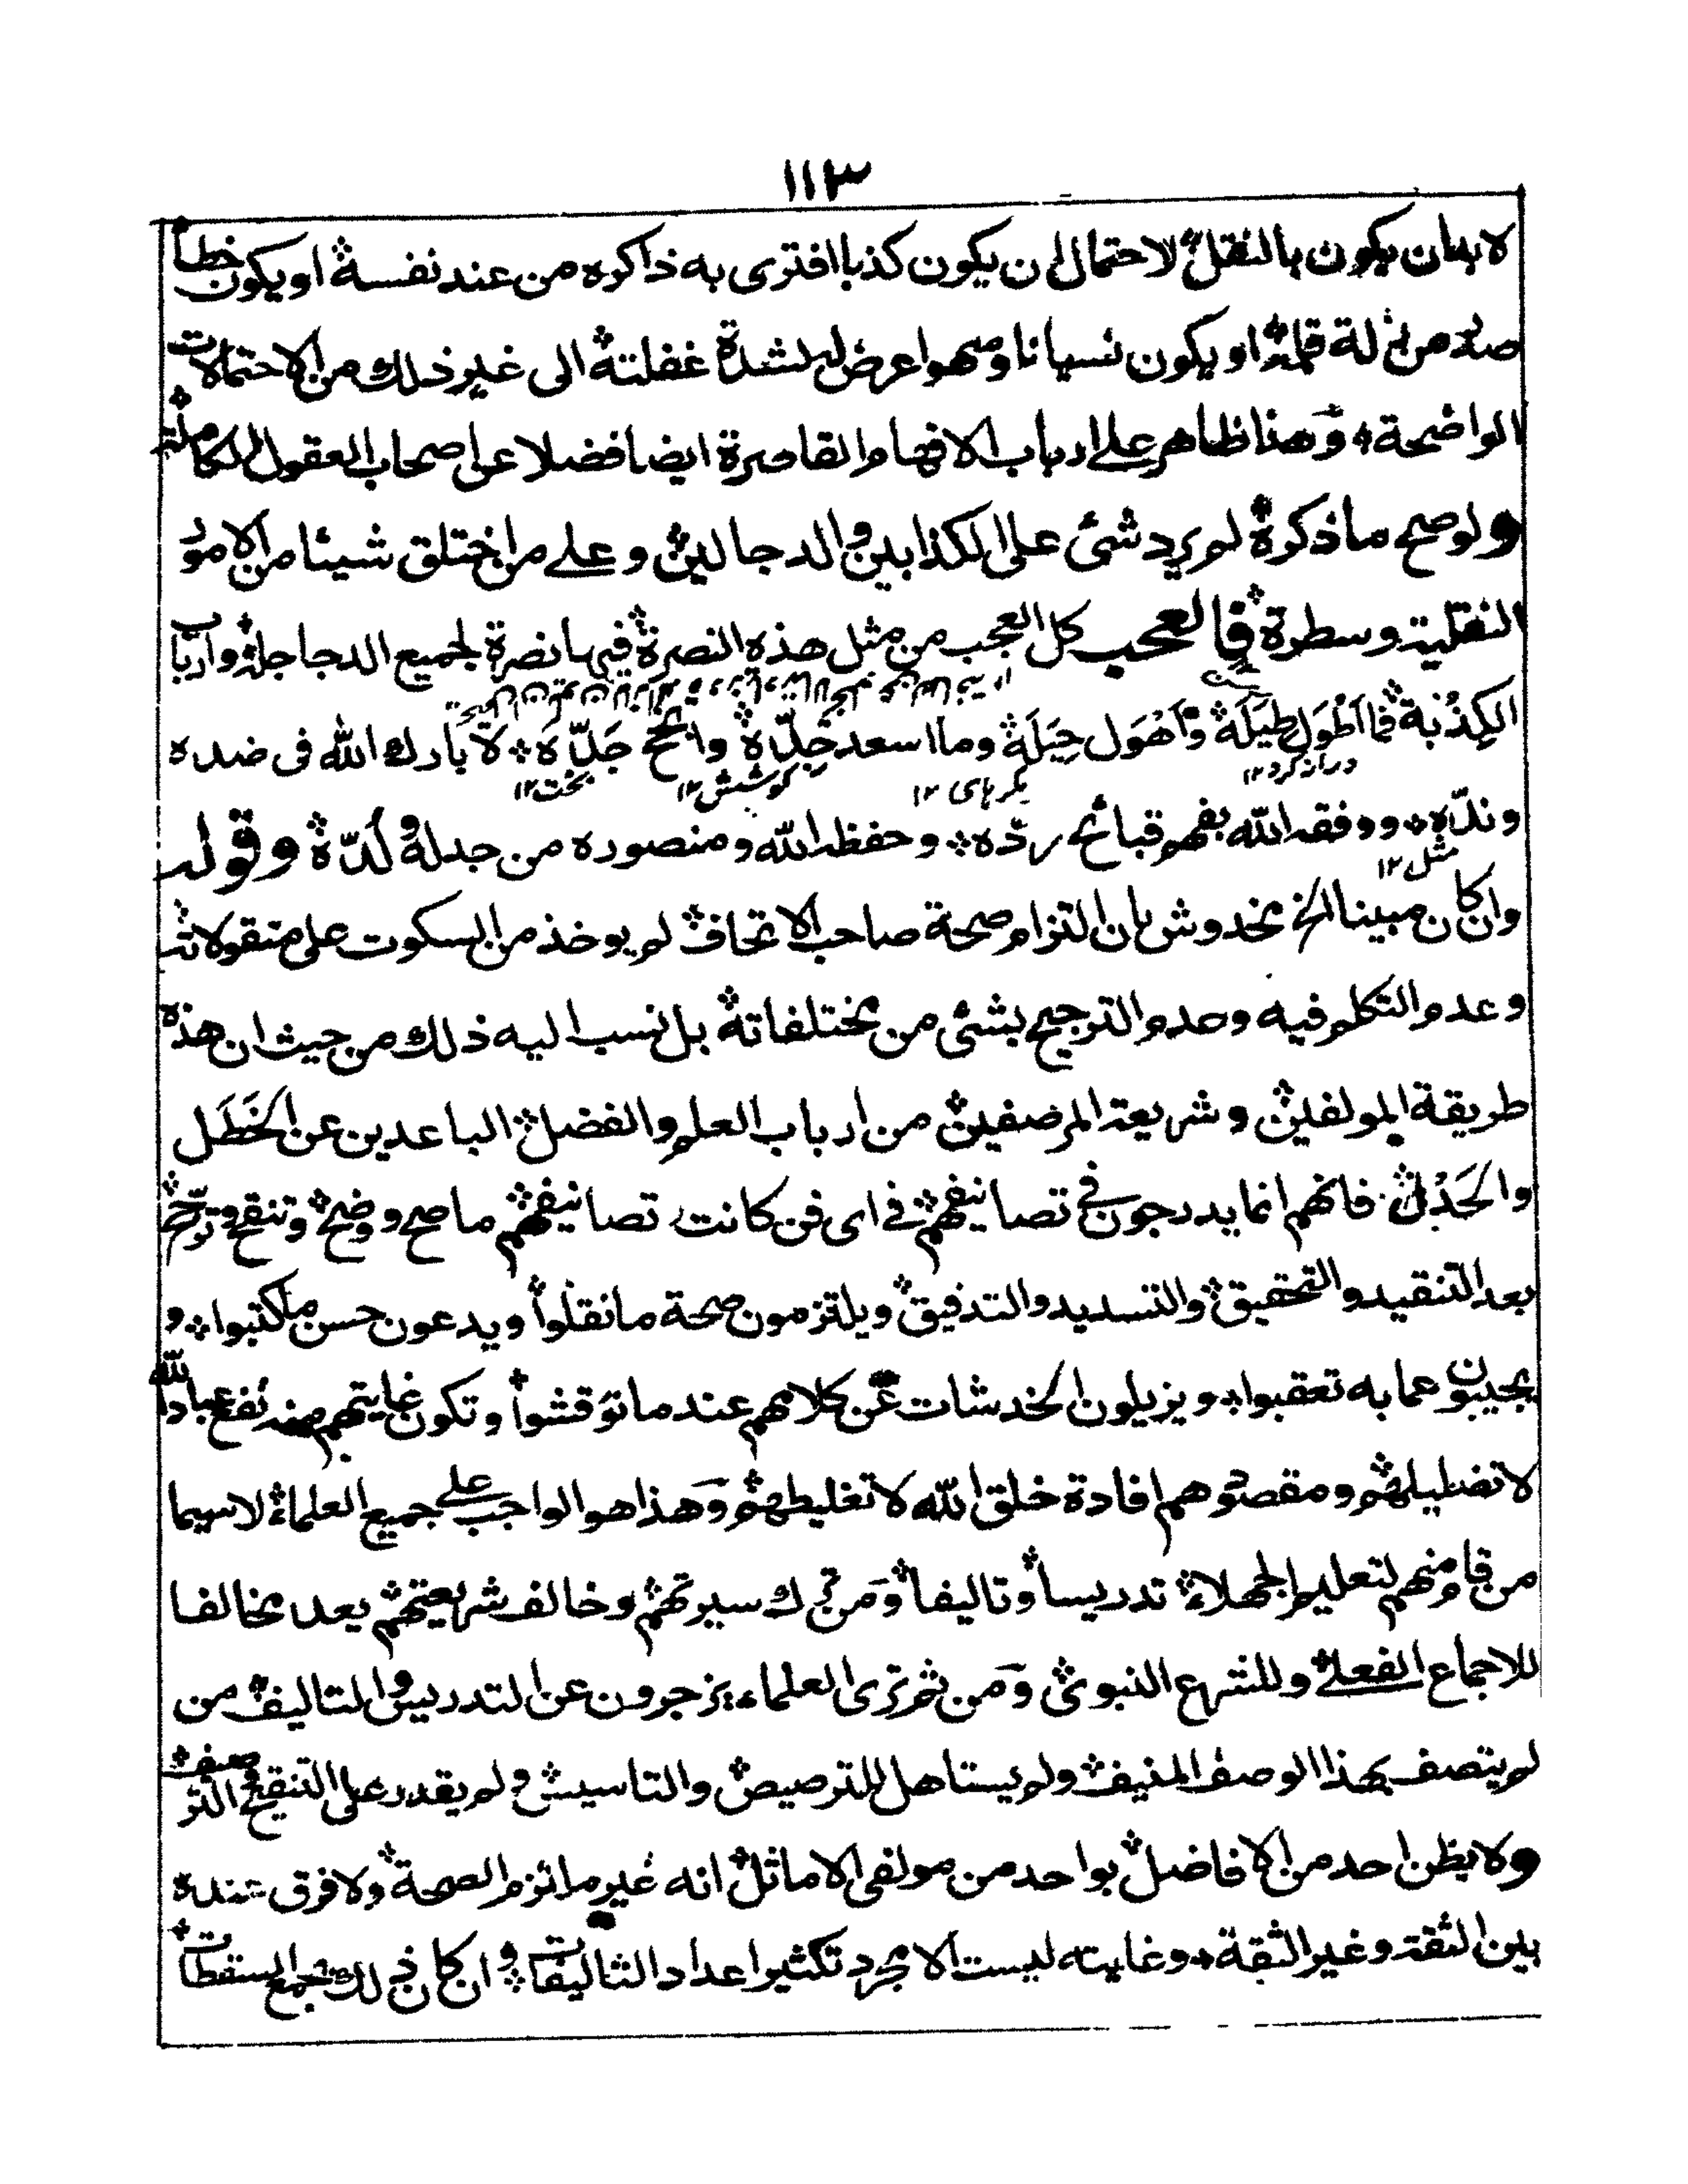 ١١٣
لا بد ان يكون بالنقل لاحتمال ان يكون كذبا افترى به ذاكره من عند نفسه او يكون خطأ
صدر من زلة قلمه او يكون نسيانا وسهوا عرض له لشدة غفلته الى غير ذلك من الاحتمالات
الواضحة وهذا ظاهر على ارباب الافهام القاصرة ايضا فضلا عن اصحاب العقول الكاملة
ولو صح ما ذكره لم يرد شئ على الكذابين والدجالين وعلى من اختلق شيئا من الامور
النقلية وسطره فالعجب كل العجب من مثل هذه النصرة فيها نصرة لجميع الدجاجلة وارباب
الكِذْبة فما اَطْوَل طِيَلَه وَاَهْوَل حِيَلَه وما اسعد جِدّه وانجح جَدّه لا بارك الله فى ضده
دراز كرد ١٢ مكرهاى ١٢ كوشش ١٢ بخت ١٢
وندّه ووفقه الله بفهم قبائح ردّه وحفظه الله ومنصوره من جدله ولَدّه وقوله
مثل ١٢
وان كان مبينا الخ مخدوش بان التزام صحة صاحب الاتحاف لم يوخذ من السكوت على منقولاته
وعدم التكلم فيه وعدم الترجيح بشئ من مختلفاته بل نسب اليه ذلك من حيث ان هذه
طريقة المولفين وشريعة المرصفين من ارباب العلم والفضل الباعدين عن الخَطَل
والجَدَل فانهم انما يدرجون فى تصانيفهم فى اى فن كانت تصانيفهم ما صح ووضح وتنقح وترجح
بعد التنقيد والتحقيق والتسديد والتدقيق ويلتزمون صحة ما نقلوا ويدعون حسن ما كتبوا و
يجيبون عما به تعقبوا ويزيلون الخدشات عن كلامهم عند ما نوقشوا وتكون غايتهم منه نفع عباد الله
لا تضليلهم ومقصودهم افادة خلق الله لا تغليطهم وهذا هو الواجب على جميع العلماء لا سيما
من قام منهم لتعليم الجهلاء تدريسا وتاليفا ومن ترك سيرتهم وخالف شريعتهم يعد مخالفا
للاجماع الفعلى وللشرع النبوى ومن ثم ترى العلماء يزجرون عن التدريس والتاليف من
لم يتصف بهذا الوصف المنيف ولم يستاهل للترصيص والتاسيس ولم يقدر على التنقيح والترصيف
ولا يظن احد من الافاضل بواحد من مولفى الاماثل انه غير ملتزم الصحة ولا فرق عنده
بين الثقة وغير الثقة وغايته ليست الا مجرد تكثير اعداد التاليفات وان كان ذلك بجمع السقطات